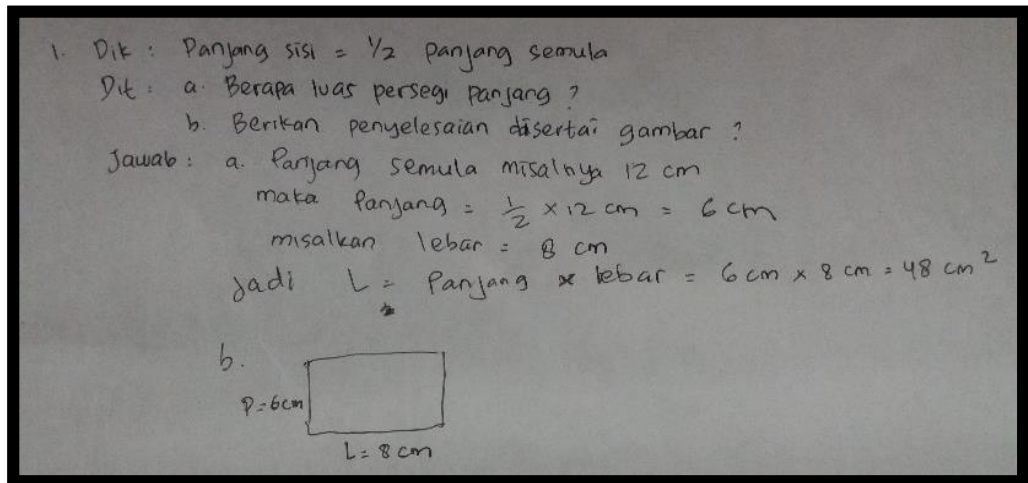 1. Dik : Panjang sisi = 1/2 panjang semula
Dit : a. Berapa luas persegi panjang ?
b. Berikan penyelesaian disertai gambar ?
Jawab : a. Panjang semula misalnya 12 cm
maka Panjang = 1/2 × 12 cm = 6 cm
misalkan lebar = 8 cm
Jadi L = Panjang × lebar = 6 cm × 8 cm = 48 cm²
b.
P = 6 cm
L = 8 cm